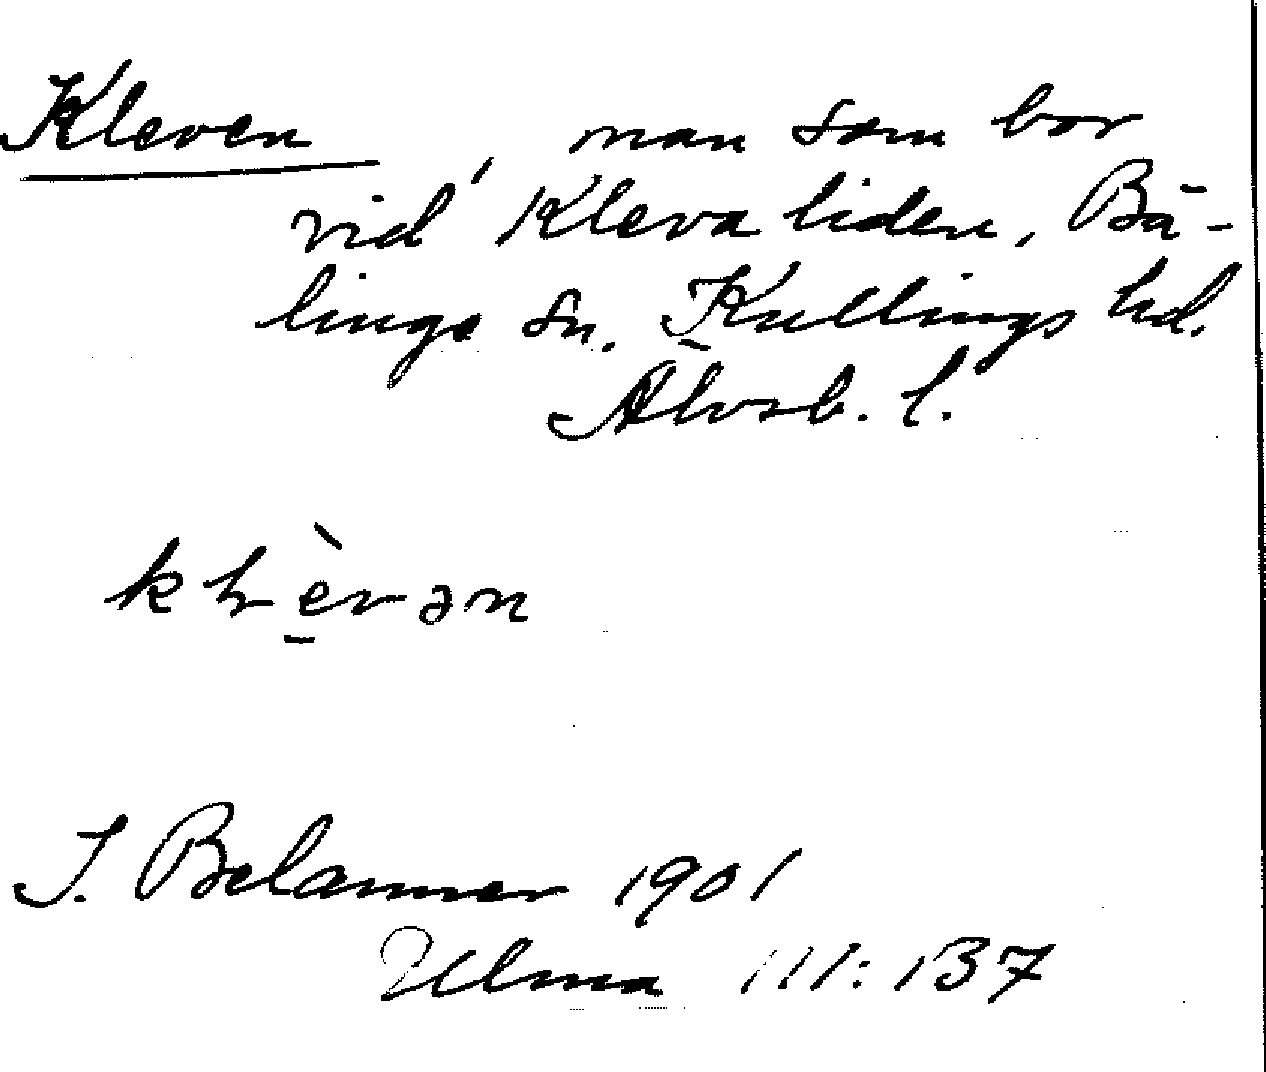 Kleven, man som bor
vid Kleva liden, Bä-
linge sn. Kullings hd.
Älvsb. l.
klèvən
I. Belanner 1901
Ulma 111:137